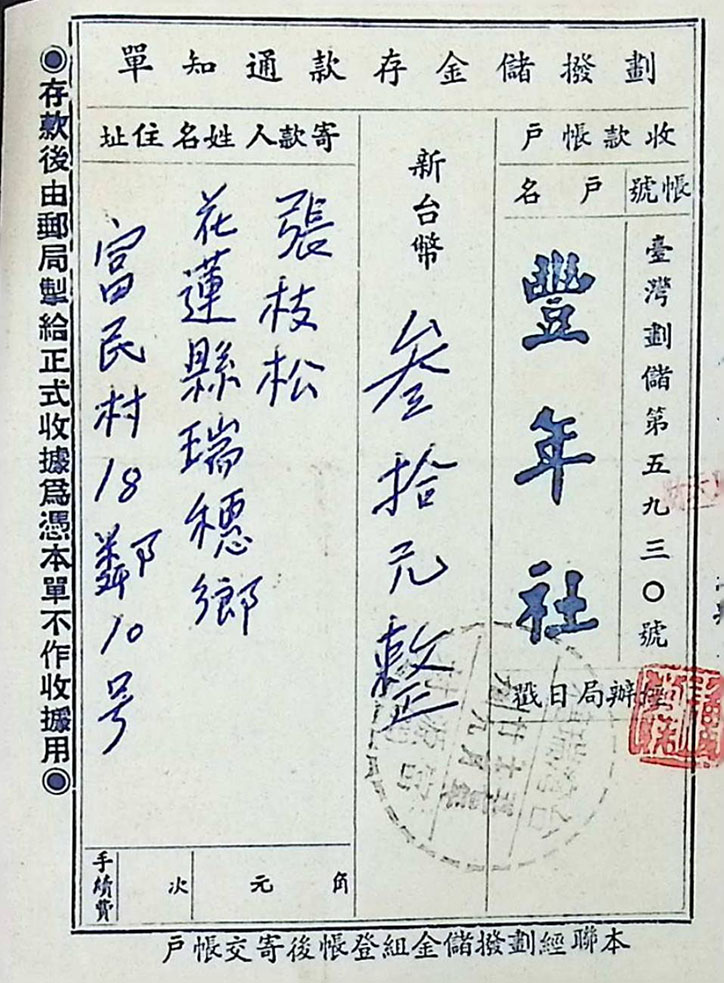 劃撥儲金存款通知單
收款帳戶
帳號
戶名
臺灣劃儲第五九三〇號
豐年社
經辦局日戳
新台幣
叁拾元整
寄款人姓名住址
張枝松
花蓮縣瑞穗鄉
富民村18鄰10号
手續費
次
元
角
◎存款後由郵局掣給正式收據為憑本單不作收據用◎
本聯經劃撥儲金組登帳後寄交帳戶